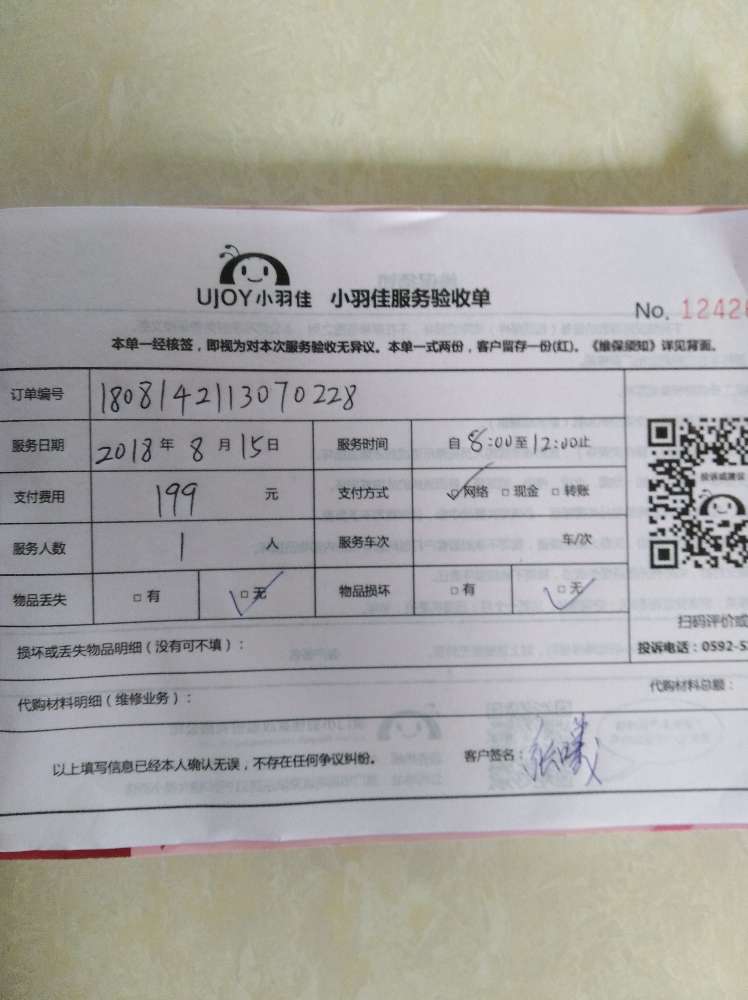 UJOY小羽佳 小羽佳服务验收单
No. 12426
本单一经核签，即视为对本次服务验收无异议。本单一式两份，客户留存一份(红)。《维保须知》详见背面。
订单编号 1808142113070228
服务日期 2018年8月15日 服务时间 自8:00至12:00止
支付费用 199 元 支付方式 □网络 □现金 □转账
服务人数 1 人 服务车次 车/次
物品丢失 □有 □无 物品损坏 □有 □无
投诉或建议
扫码评价或
投诉电话：0592-5
损坏或丢失物品明细（没有可不填）：
代购材料明细（维修业务）： 代购材料总额：
以上填写信息已经本人确认无误，不存在任何争议纠纷。 客户签名：张曦